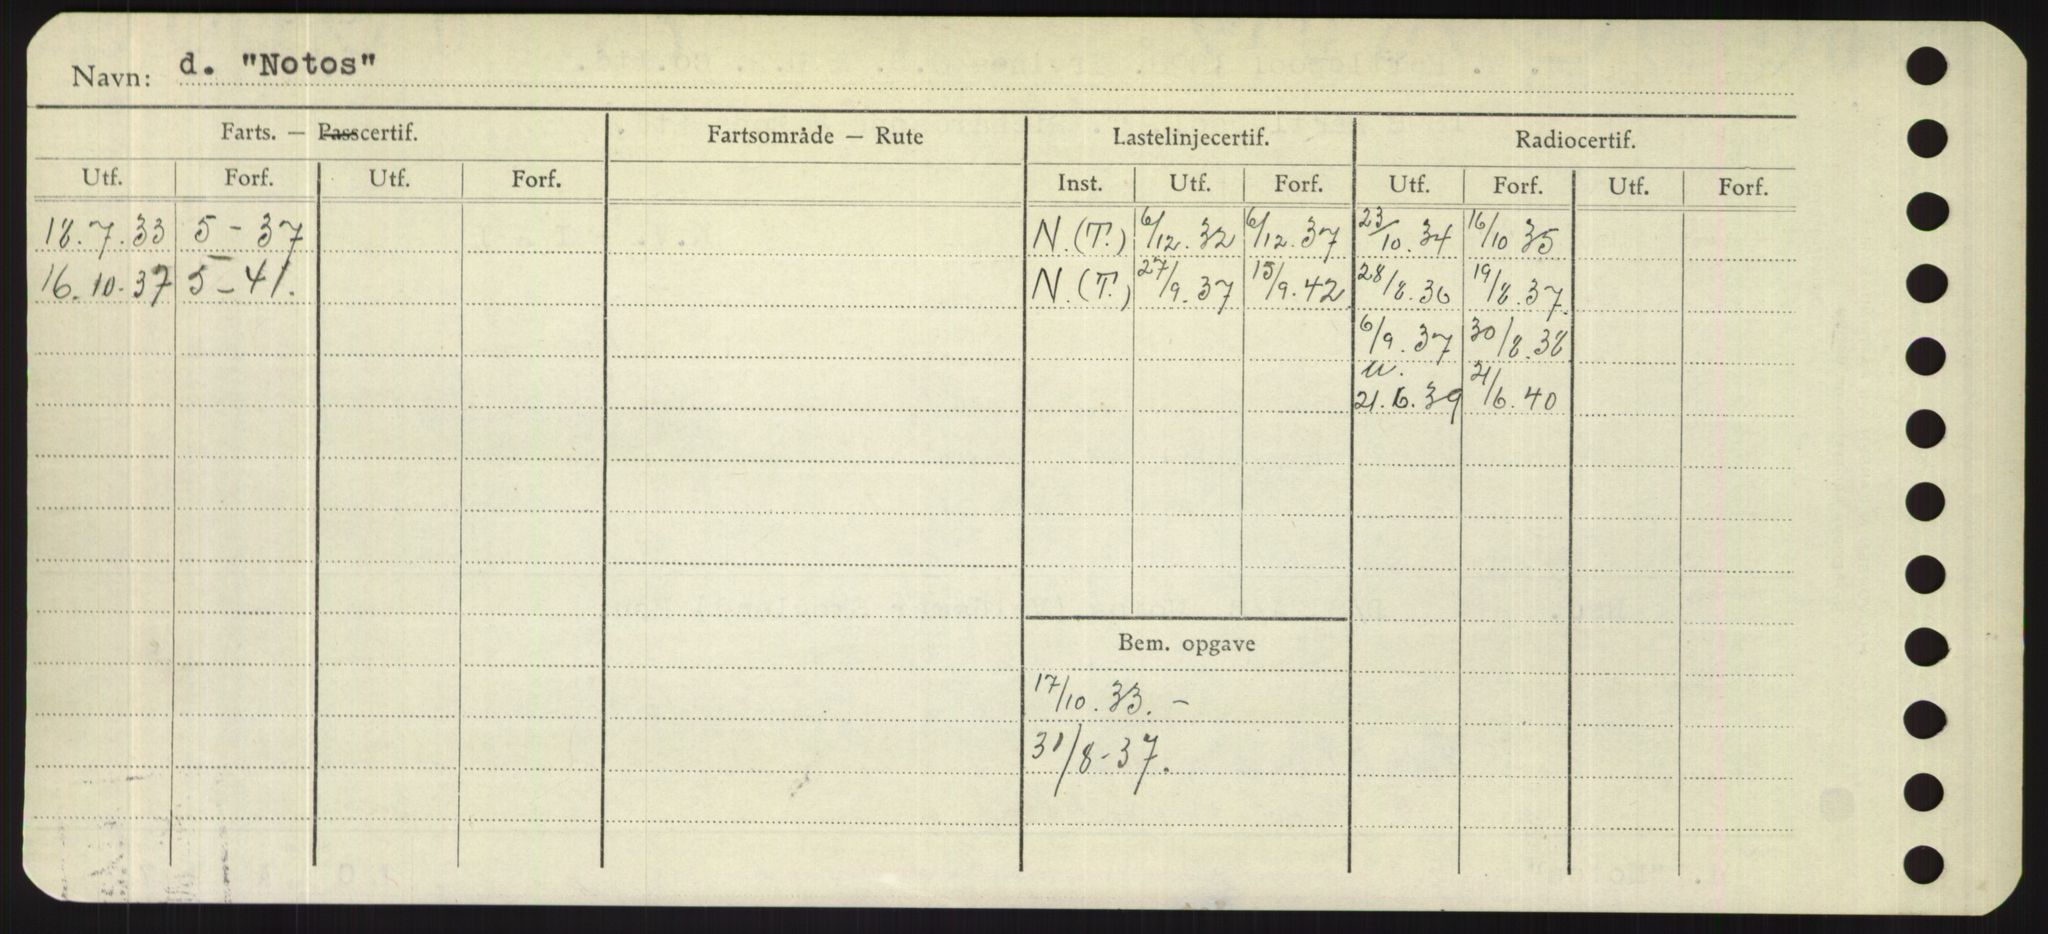 Navn: d. "Notos"
Farts. — Passcertif. Fartsområde — Rute Lastelinjecertif. Radiocertif.
Utf. Forf. Utf. Forf. Inst. Utf. Forf. Utf. Forf. Utf. Forf.
18.7.33 5-37 N.(T.) 6/12.32 6/12.37 23/10.34 16/10 35
16.10.37 5-41. N.(T.) 27/9.37 15/9.42 28/8.36 19/8.37.
6/9.37 30/8.38
u.
21.6.39 21/6.40
Bem. opgave
17/10.33. -
31/8-37.